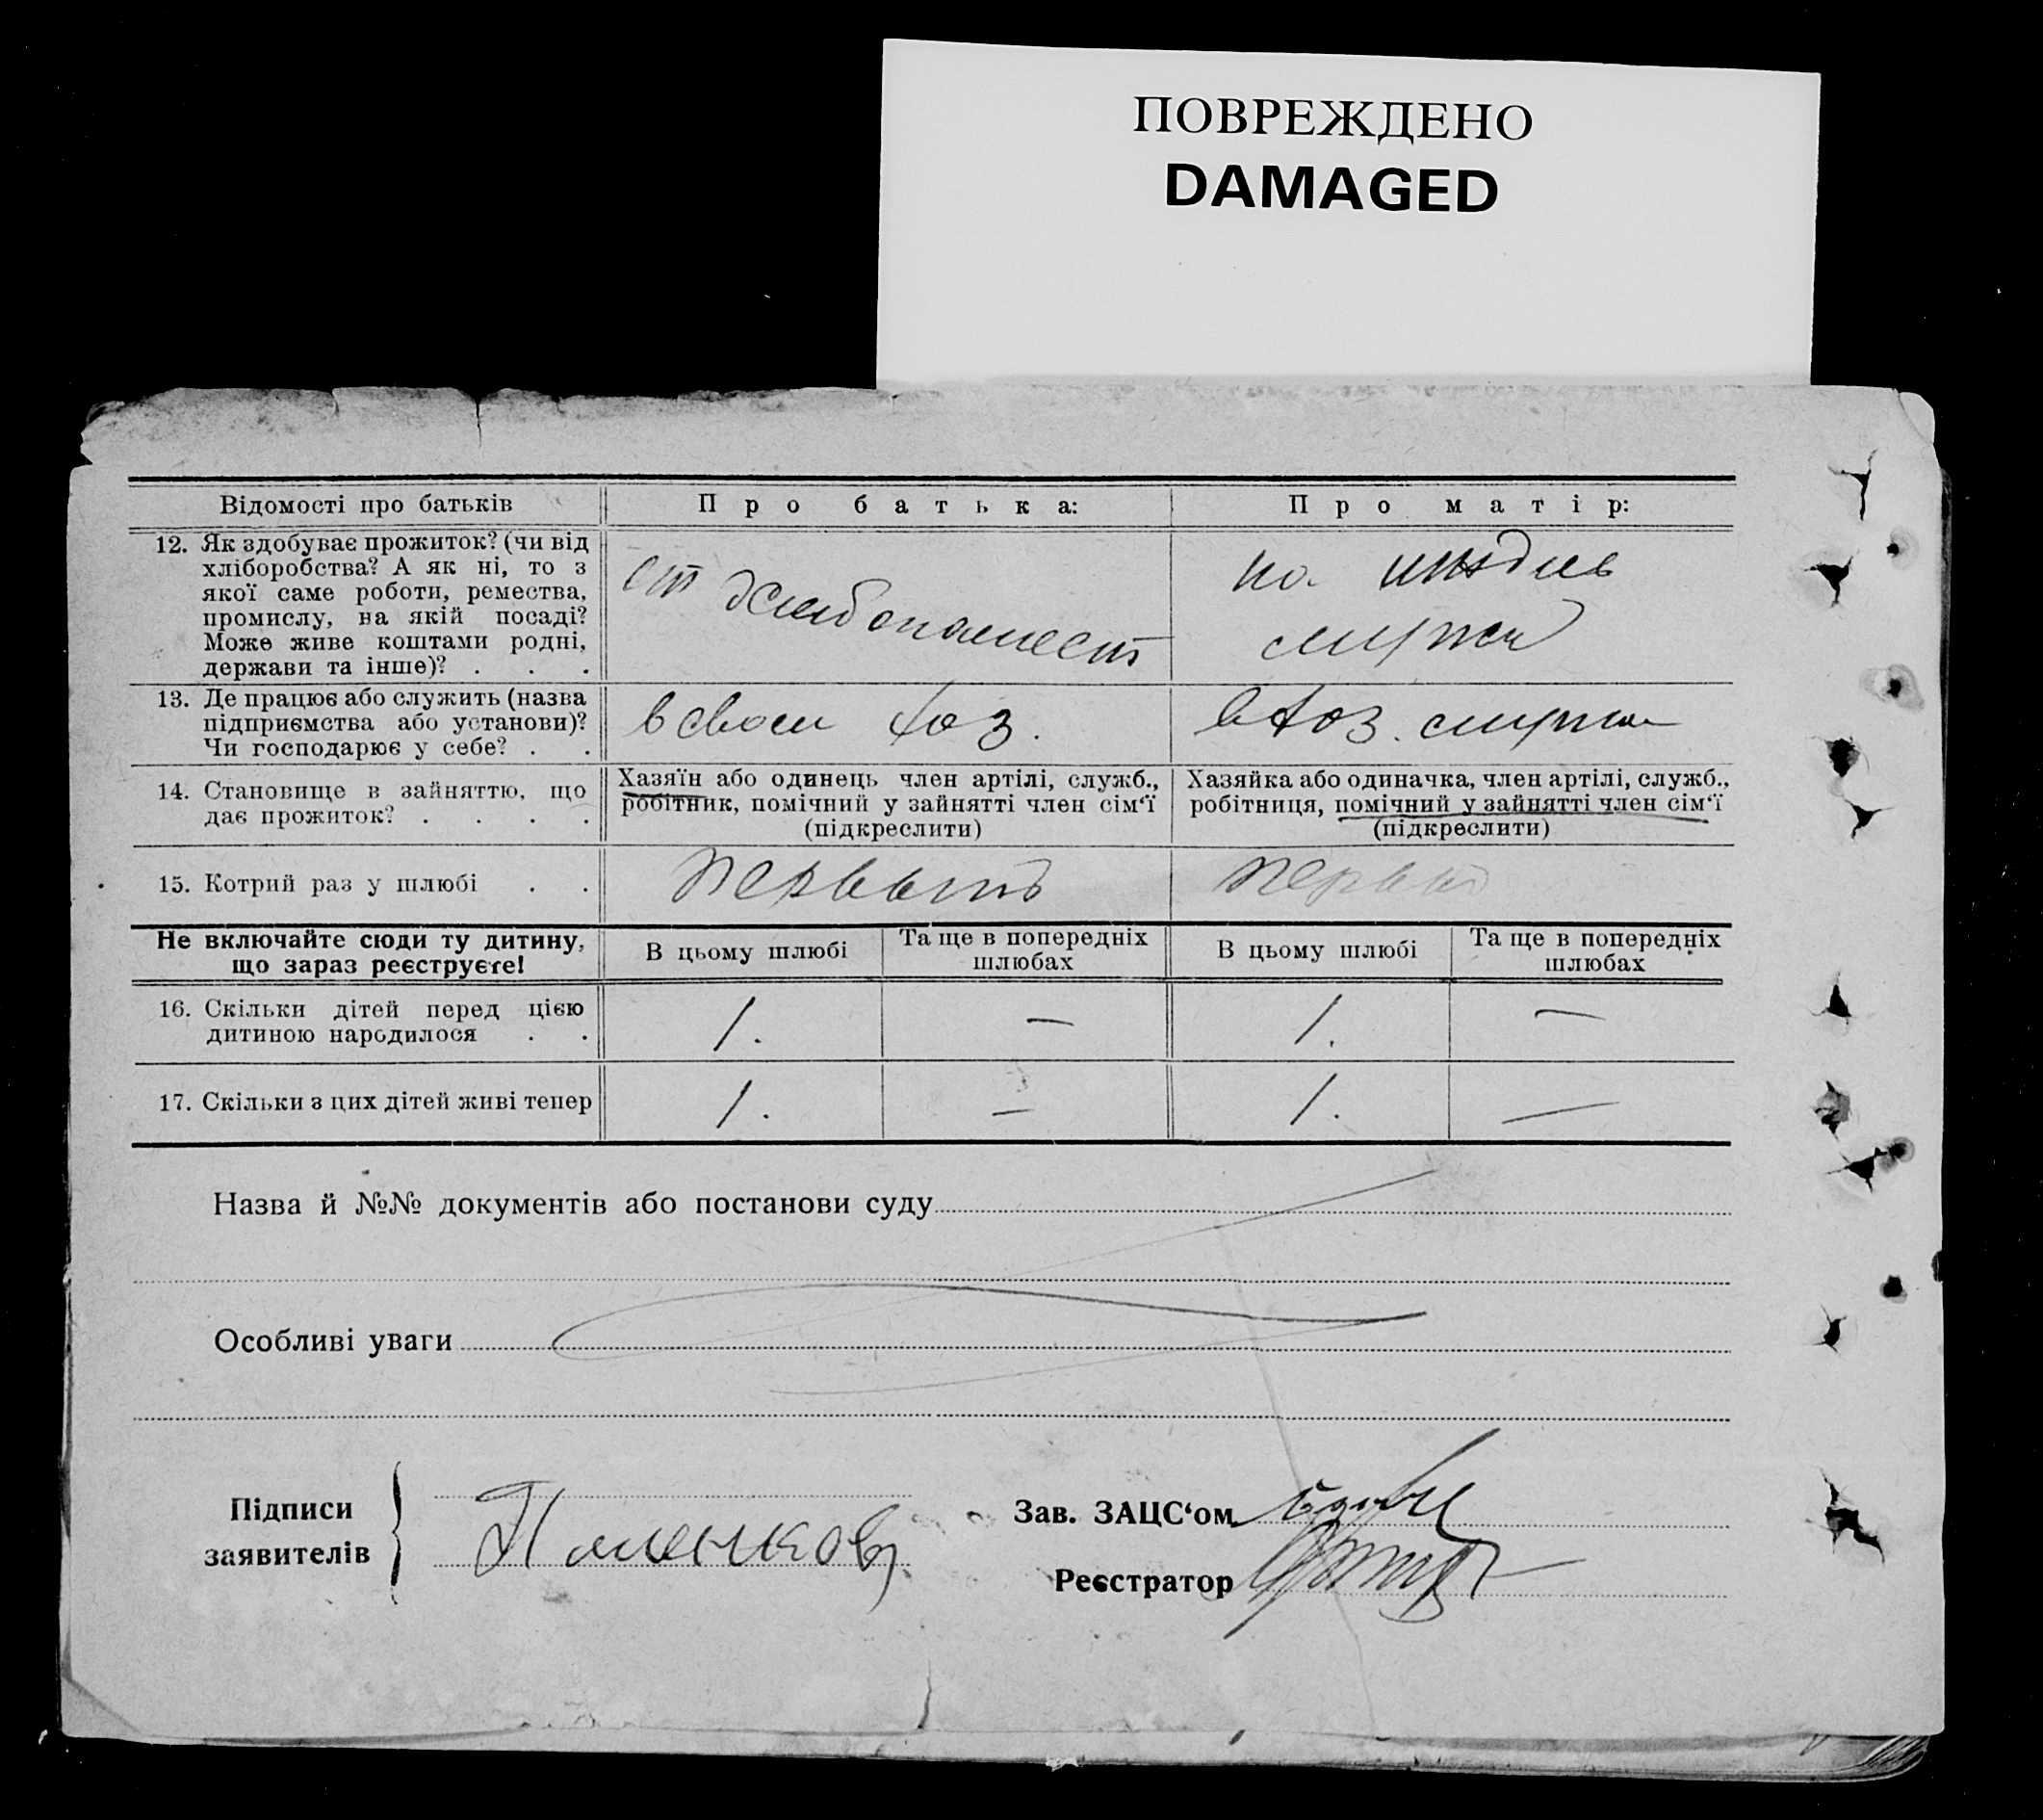 ПОВРЕЖДЕНО
DAMAGED
Відомості про батьків
Про батька:
Про матір:
12. Як здобуває прожиток? (чи від
хліборобства? А як ні, то з
якої саме роботи, ремества,
промислу, на якій посаді?
Може живе коштами родні,
держави та інше)? . . .
от хлебопашест
на иждив
мужа
13. Де працює або служить (назва
підприємства або установи)?
Чи господарює у себе? . .
в своем хоз.
в хоз. мужа
14. Становище в зайняттю, що
дає прожиток? . . . .
Хазяїн або одинець член артілі, служб.,
робітник, помічний у зайнятті член сім‘ї
(підкреслити)
Хазяйка або одиначка, член артілі, служб.,
робітниця, помічний у зайнятті член сім‘ї
(підкреслити)
15. Котрий раз у шлюбі . .
Не включайте сюди ту дитину,
що зараз реєструєте!
В цьому шлюбі
Та ще в попередніх
шлюбах
В цьому шлюбі
Та ще в попередніх
шлюбах
16. Скільки дітей перед цією
дитиною народилося . .
1.
—
1.
—
17. Скільки з цих дітей живі тепер
1.
—
1.
—
Назва й №№ документів або постанови суду
Особливі уваги
Підписи
заявителів
Зав. ЗАЦС‘ом
Реєстратор